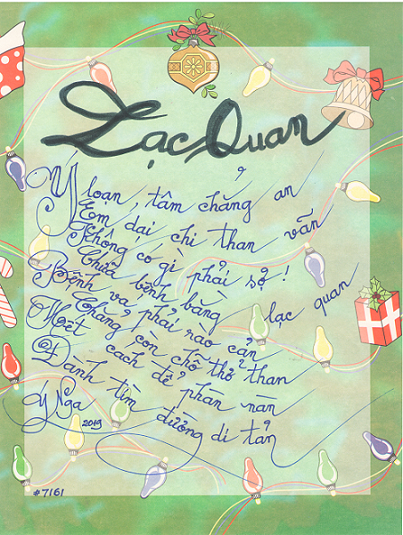 Lạc Quan
Ý loạn, tâm chẳng an
Em dại chi than vãn
Không có gì phải sợ!
Chữa bệnh bằng lạc quan
Bệnh và phải rào cản
Chẳng còn chỗ thở than
Hết cách để phàn nàn
Đành tìm đường di tản
Ý Nga 2019
#7161